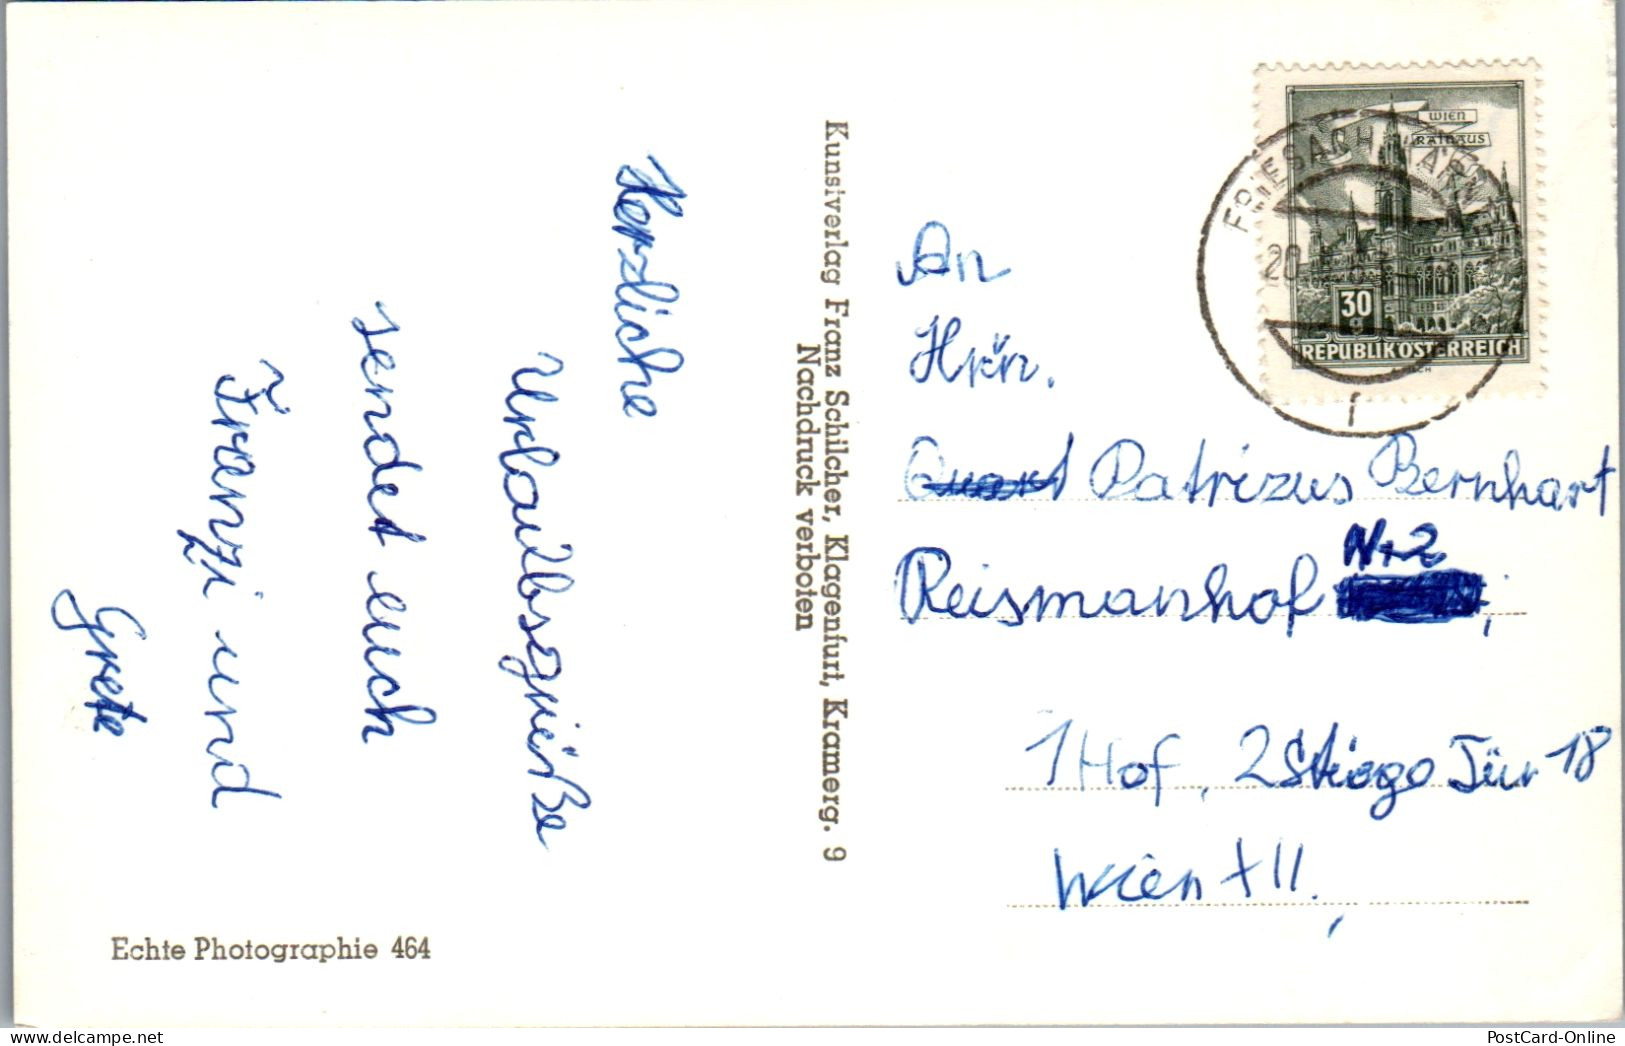 Herzliche
Urlaubsgrüße
sendet euch
Franzi und
Grete
Echte Photographie 464
Kunstverlag Franz Schilcher, Klagenfurt, Kramerg. 9
Nachdruck verboten
WIEN
RATHAUS
30
g
REPUBLIK ÖSTERREICH
FRIESACH, KÄRN
20.
An
Hrn.
Patrizus Bernhart
Nr 2
Reismanhof ,
1 Hof, 2 Stiege Tür 18
Wien XII.,
PostCard-Online